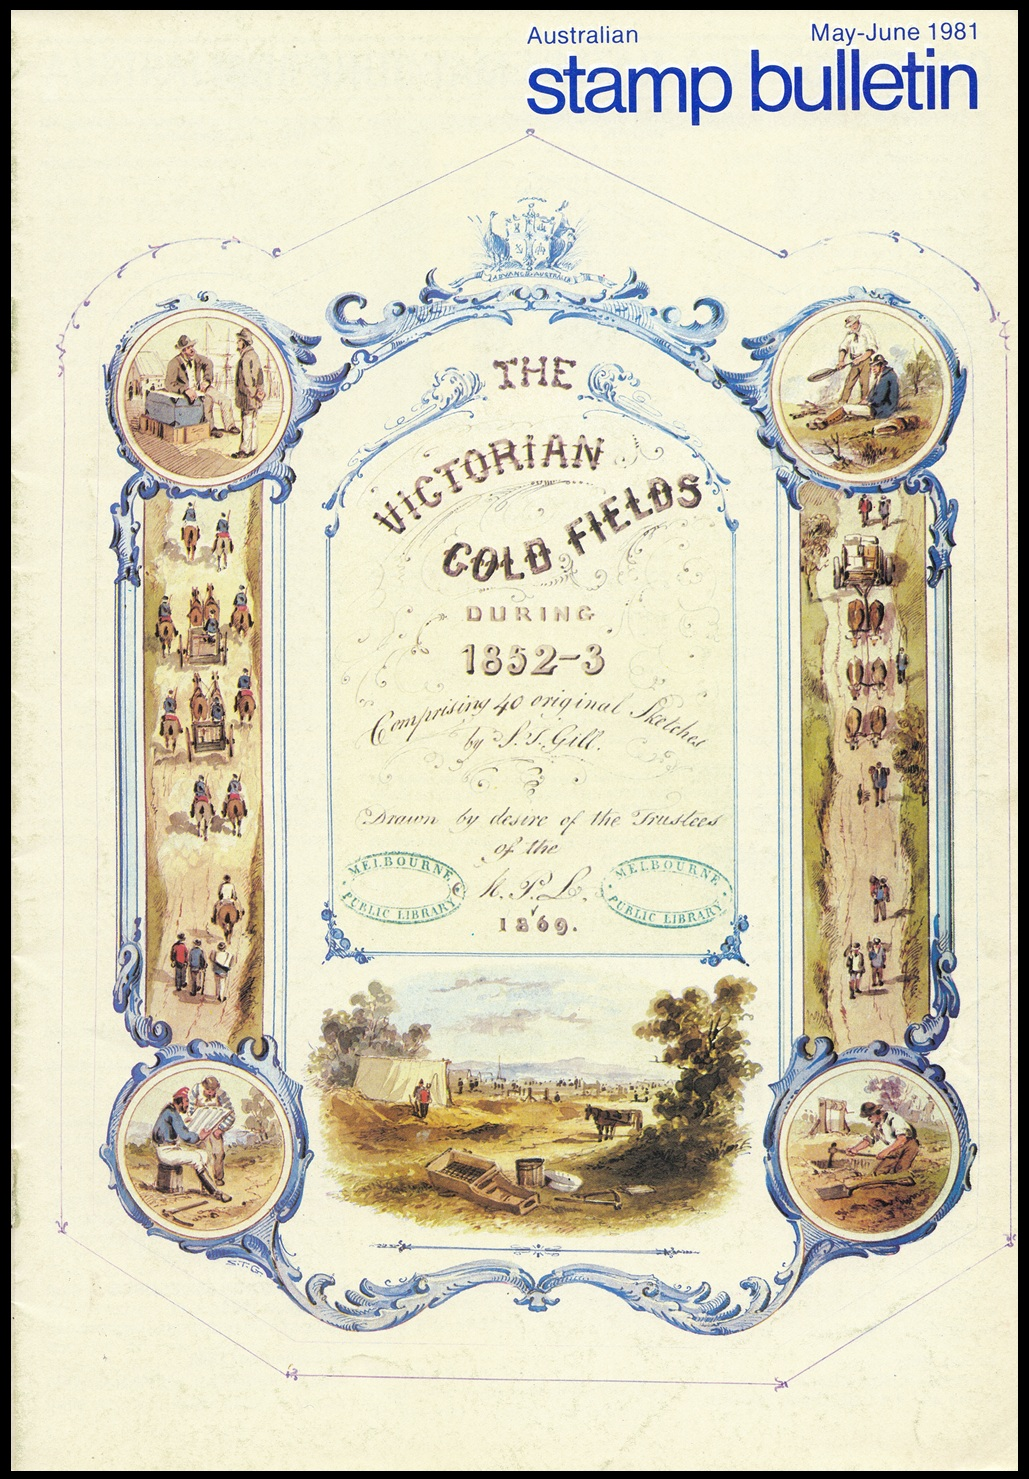 Australian
May-June 1981
stamp bulletin
ADVANCE AUSTRALIA
THE
VICTORIAN
GOLD FIELDS
DURING
1852-3
Comprising 40 original Sketches
by S.T. Gill.
Drawn by desire of the Trustees
of the
M.P.L.
MELBOURNE
PUBLIC LIBRARY
MELBOURNE
PUBLIC LIBRARY
1869.
S.T.G.